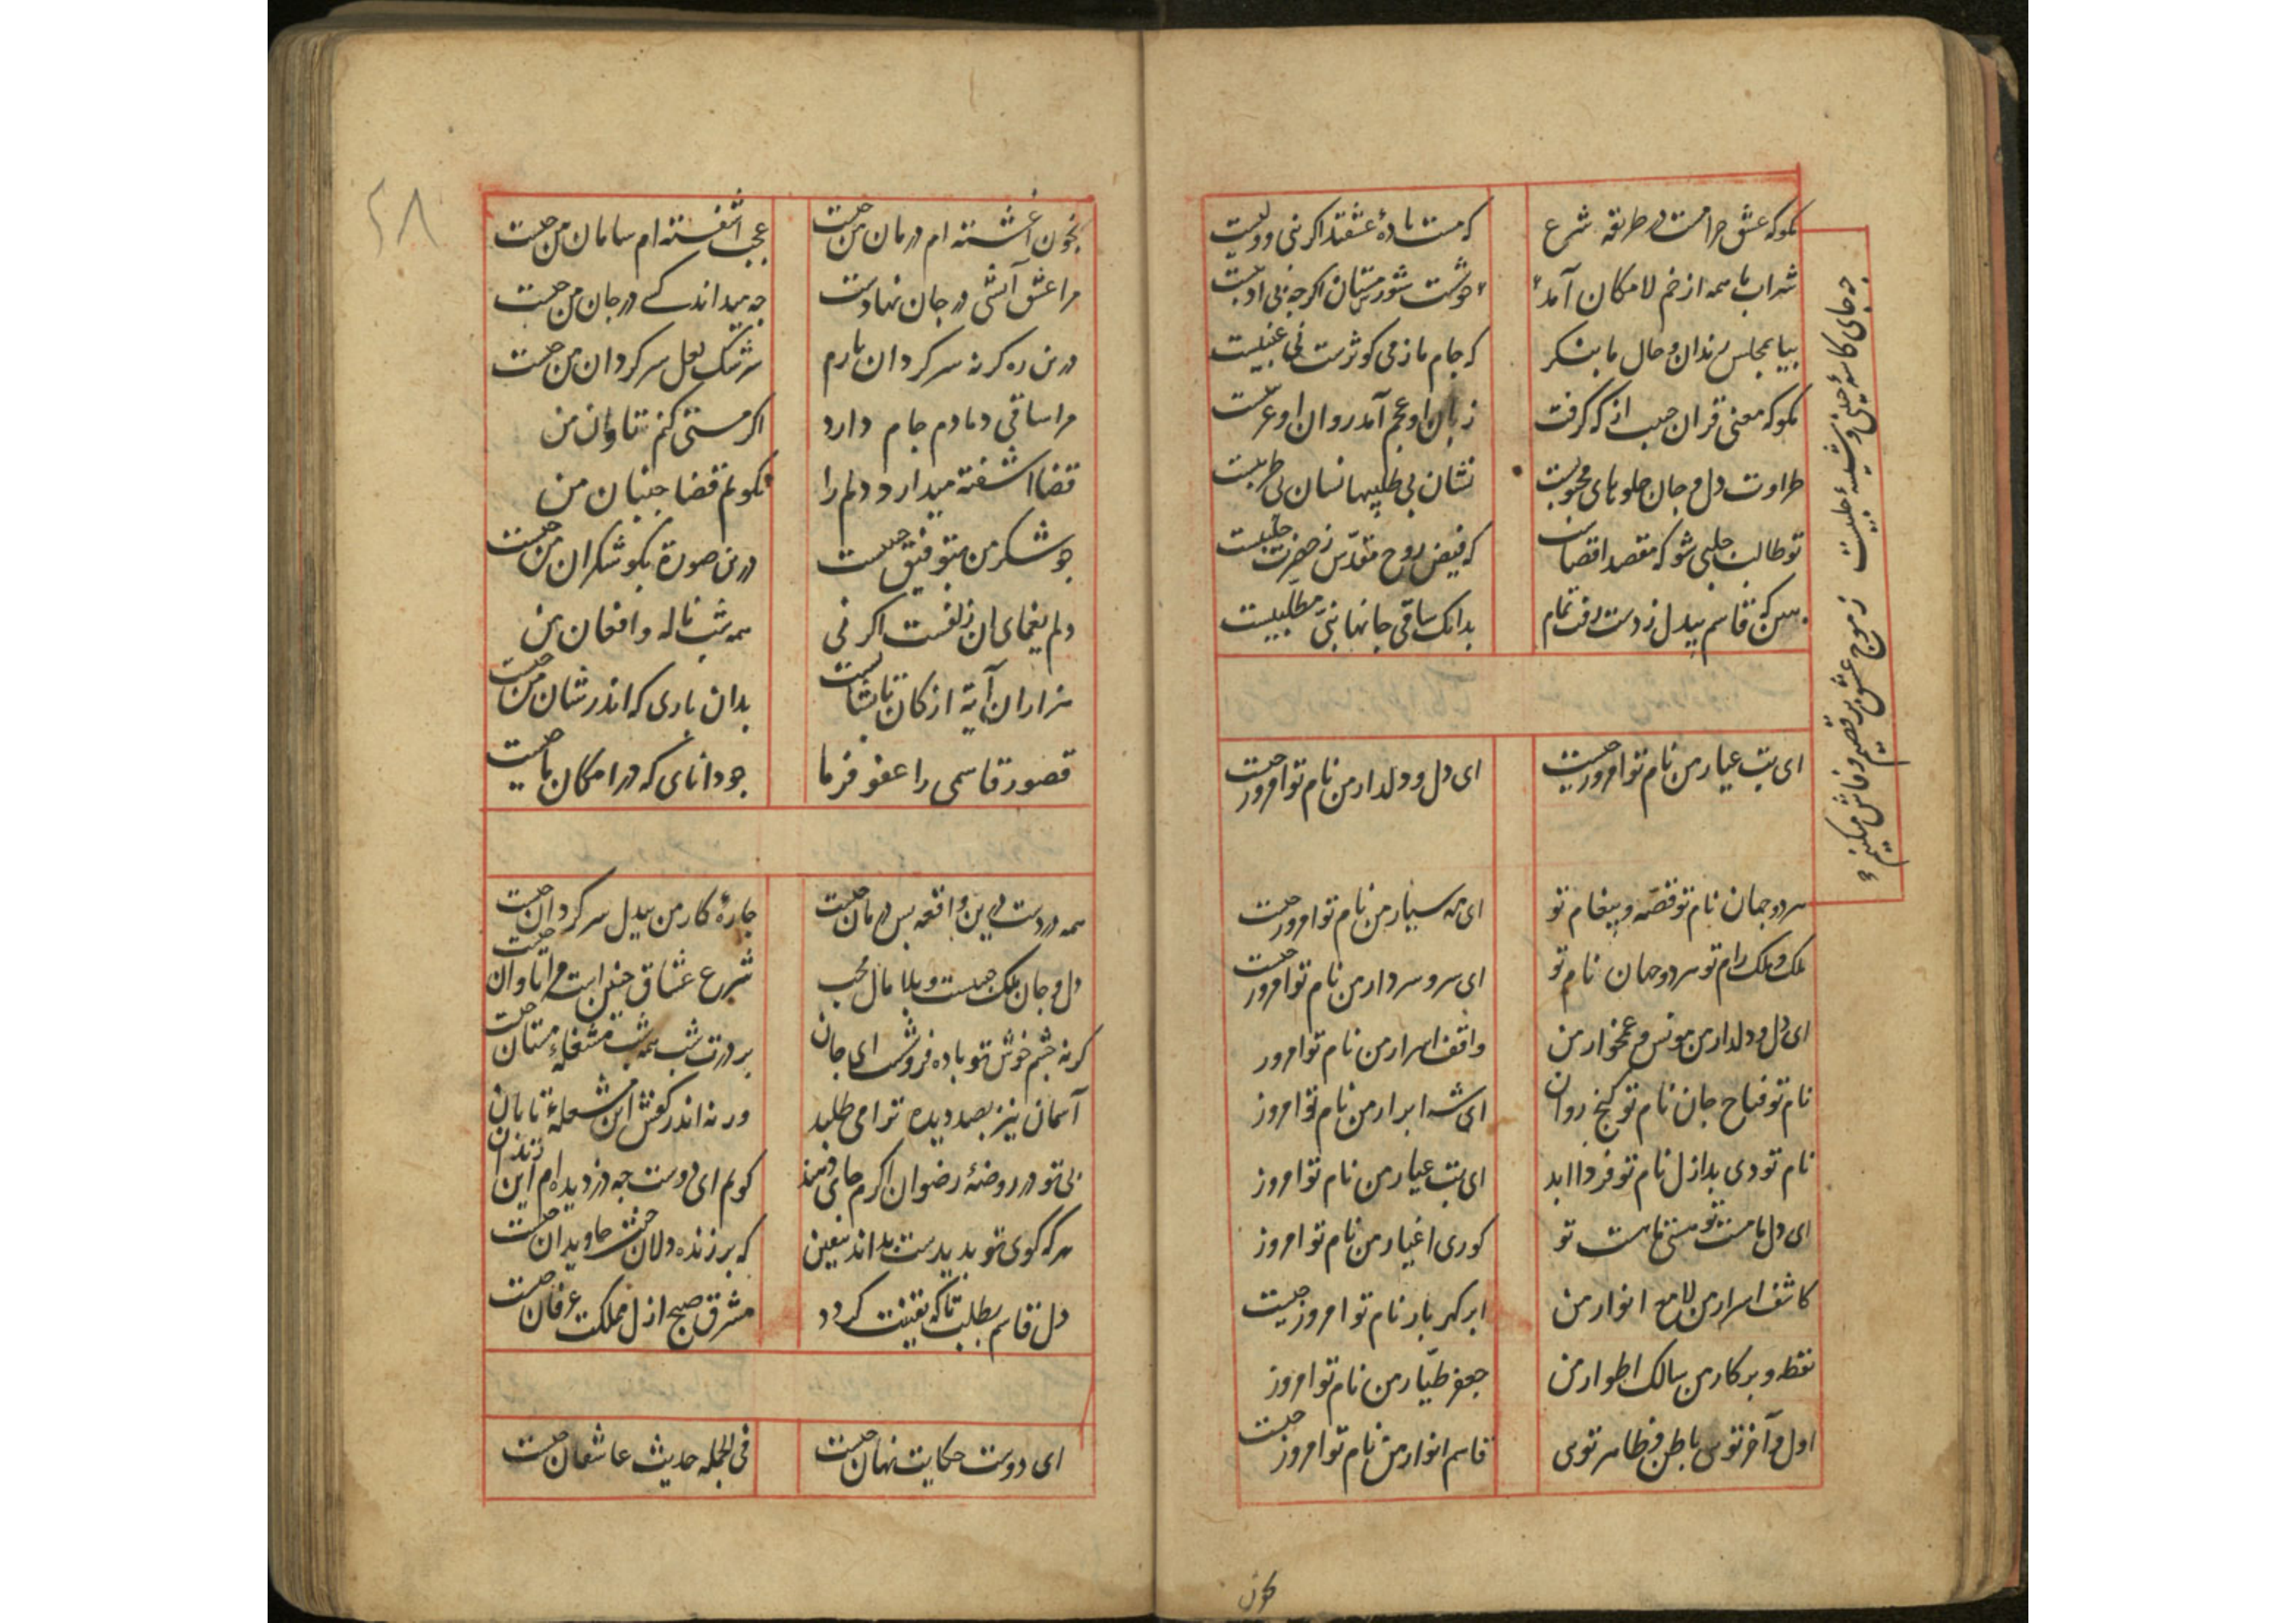 مکو که عشق حرامست در طریقه شرع که مست بادۀ عشقند اکر نبی و ولیست
شراب ما همه از خم لامکان آمد خوشست شور مستان اکرچه بی ادبیست
بیا بمجلس رندان و حال ما بنکر که جام ما ز می کوثرست نی عنبیست
مکو که معنی قران حبیب از که کرفت زبان او عجم آمد روان او عربیست
طراوت دل و جان جلوهای محبوبیست نشان بی طلبیها نسان بی طربیست
تو طالب حلبی شو که مقصد اقصاست که فیض روح مقدّس ز حضرت حلبیست
ببین که قاسم بیدل ز دست رفت تمام بدانک ساقی جانها نبیّ مطّلبیست
چه جای کاسۀ چینی و شیشۀ حلبیست
ز موج عشق برقصیم و فاش میکوئیم
ای بت عیار من نام تو امروز چیست ای دل و دلدار من نام تو امروز چیست
هر دو جهان نام تو قصّه و پیغام تو ای مه سیار من نام تو امروز چیست
ملک و ملک رام تو هر دو جهان نام تو ای سر و سردار من نام تو امروز چیست
ای دل و دلدار من مونس و غمخوار من واقف اسرار من نام تو امروز
نام تو فتاح جان نام تو کنج روان ای شه ابرار من نام تو امروز
نام تو دی بد ازل نام تو فردا ابد ای بت عیار من نام تو امروز
ای دل ما مست تو هستی ما هست تو کوری اغیار من نام تو امروز
کاشف اسرار من لامع انوار من ابر کهر بار نام تو امروز چیست
نقطه و برکار من سالک اطوار من جعفر طیّار من نام تو امروز
اول و آخر توی باطن و ظاهر توی قاسم انوار من نام تو امروز چیست
بخون
۲۸
بخون آغشته ام درمان من چیست عجب آشفته ام سامان من چیست
مرا عشق آتشی در جان نهادست چه میداند کسے در جان من چیست
درین ره کر نه سرکردان یارم سرشک لعل سرکردان من چیست
مرا ساقی دمادم جام دارد اکر مستی کنم تاوان من
قضا آشفته میدارد دلم را نکویم قضا جنبان من
چو شکر من بتوفیق حبیبست درین صورة بکو شکران من چیست
دلم یغمای ان زلفست اکر نی همه شب ناله و افغان من
هزاران آیة از کان تا بشانست بدان یاری که اندر شان من چیست
قصور قاسمی را عفو فرما چو دانای که در امکان ما چیست
همه دردست درین واقعه بس درمان چیست چارۀ کار من بیدل سرکردان چیست
دل و جان ملک حبیبست و بلا مال محب شرع عشاق چنین است مرا تاوان چیست
کر نه چشم خوش تو باده فروشست ای جان بر درت شب همه شب مشغلۀ مستان چیست
آسمان نیز بصد دیده ترا می طلبد ورنه اندر کفش این مشعلۀ تابان
بی تو در روضۀ رضوان اکرم جای دهند کویم ای دوست چه دزدیده ام این زندان
هر که کوی تو بدیدست بداند بیقین که بر زنده دلان جنت جاویدان چیست
دل قاسم بطلب تا که یقینت کردد مشرق صبح ازل مملکت عرفان چیست
ای دوست حکایت نهان چیست فی الجمله حدیث عاشقان چیست